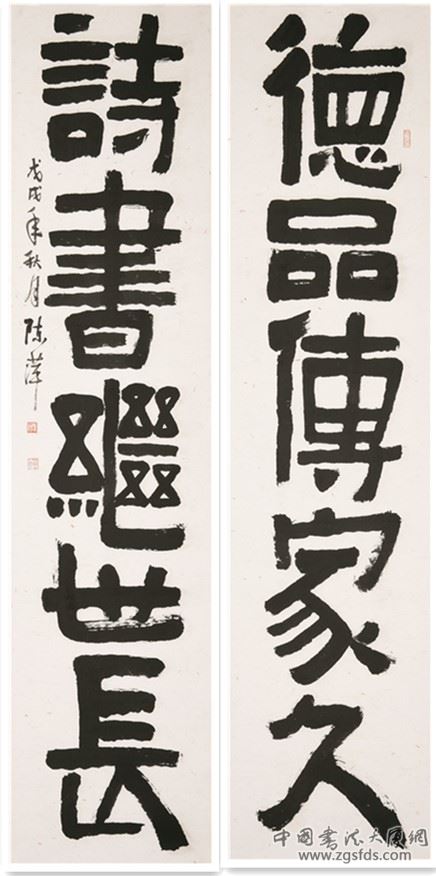 德品傳家久
詩書繼世長
戊戌年秋月陈萍
中国书法大厦網
www.zgsfds.com